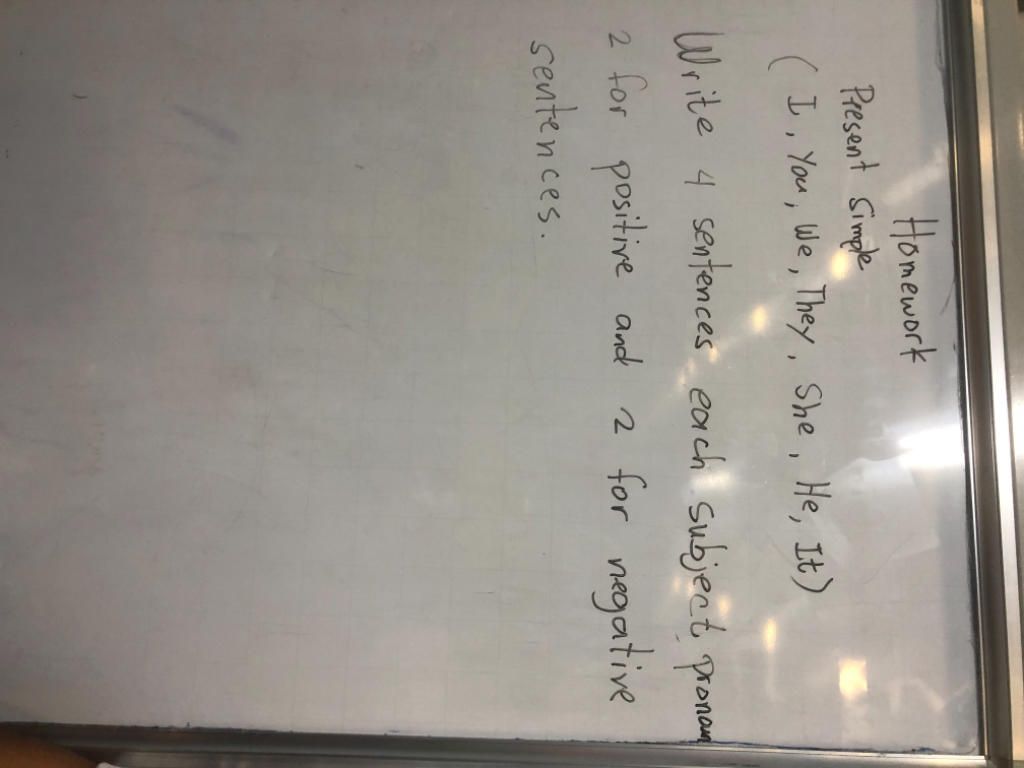 Homework
Present Simple
(I, You, We, They, She, He, It)
Write 4 sentences each subject pronoun
2 for positive and 2 for negative
sentences.